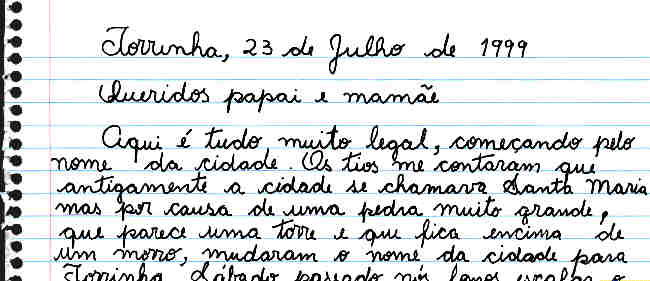 Torrinha, 23 de Julho de 1999
Queridos papai e mamãe
Aqui é tudo muito legal, começando pelo
nome da cidade. Os tios me contaram que
antigamente a cidade se chamava Santa Maria
mas por causa de uma pedra muito grande,
que parece uma torre e que fica encima de
um morro, mudaram o nome da cidade para
Torrinha. Sábado passado nós fomos escalar o